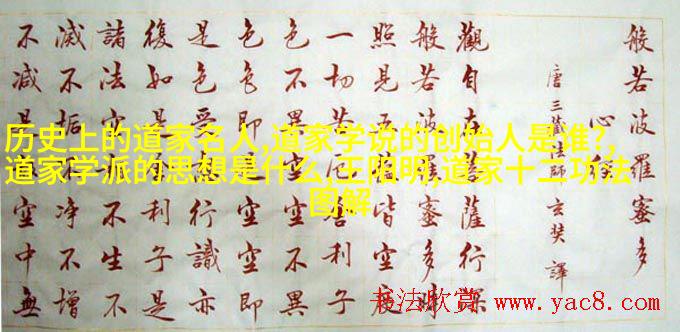 般若波羅蜜多
心
唐三藏法師玄奘譯
觀自在菩薩行深
般若波羅蜜多時
照見五皆空度
一切苦厄舍利子
色不異空不異
色色即空空即
是色受行識亦
復如是利子是
諸法空不生不
滅不垢淨不增
不減是空中無
历史上的道家名人,道家学说的创始人是谁?,
道家学派的思想是什么,王阳明,道家十二功法
图解
书法欣赏 www.yac8.com